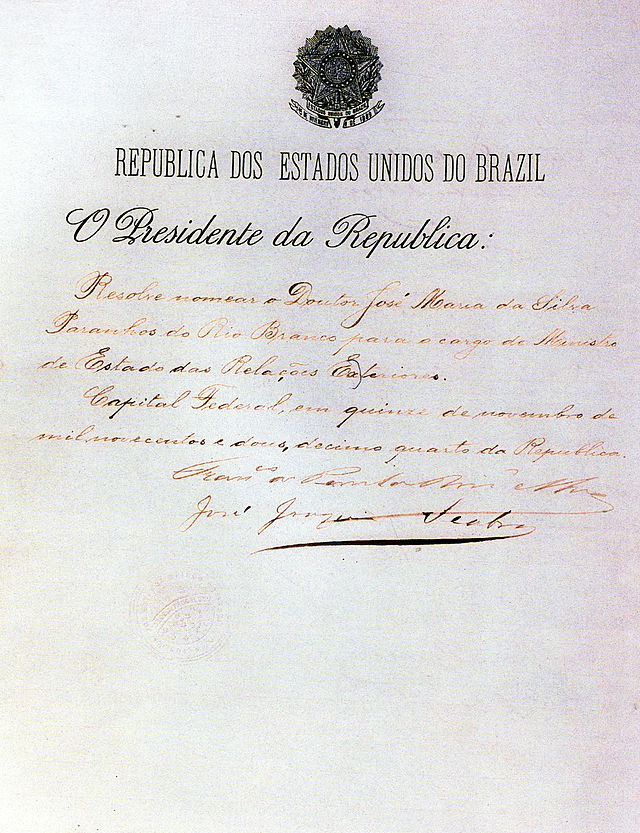 ESTADOS UNIDOS DO BRAZIL
15 DE NOVEMBRO DE 1889
REPUBLICA DOS ESTADOS UNIDOS DO BRAZIL
O Presidente da Republica:
Resolve nomear o Doutor José Maria da Silva
Paranhos do Rio Branco para o cargo de Ministro
de Estado das Relações Exteriores.
Capital Federal, em quinze de novembro de
mil novecentos e dous, decimo quarto da Republica.
Fran.co de Paula Rodrigues Alves
José Joaquim Seabra